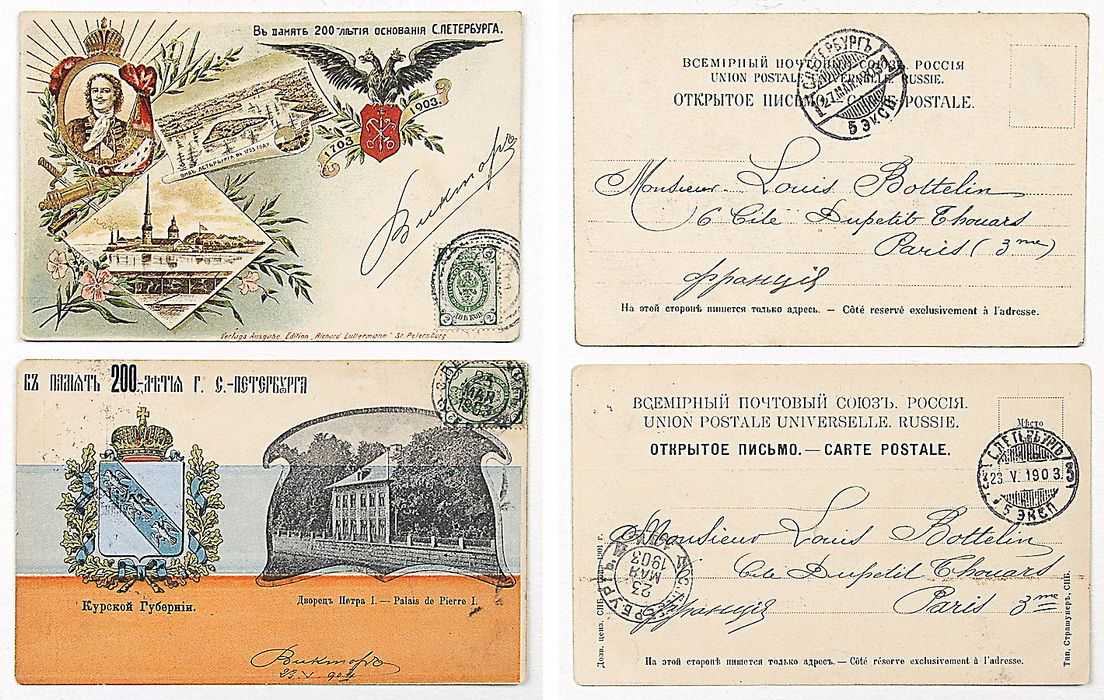 Въ память 200-лѣтія основанія С.ПЕТЕРБУРГА.
1703
1903.
ВИДЪ ПЕТЕРБУРГА въ 1733 ГОДУ.
Викторъ
2
2
Verlags Ausgabe, Edition „Richard Luttermann" St. Petersburg
ВСЕМІРНЫЙ ПОЧТОВЫЙ СОЮЗЪ. РОССІЯ
UNION POSTALE UNIVERSELLE. RUSSIE.
ОТКРЫТОЕ ПИСЬМО. — CARTE POSTALE.
С.ПЕТЕРБУРГЪ
27. MAR
5 ЭКСП.
Monsieur Louis Bottelin
6 Cité Dupetit Thouars
Paris (3me)
Франція
На этой сторонѣ пишется только адресъ. — Côté reservé exclusivement à l'adresse.
ВЪ ПАМЯТЬ 200-ЛѢТІЯ Г. С.-ПЕТЕРБУРГА
23
МАЯ
1903
Курской Губерніи.
Дворецъ Петра I. — Palais de Pierre I.
Викторъ
ВСЕМІРНЫЙ ПОЧТОВЫЙ СОЮЗЪ. РОССІЯ.
UNION POSTALE UNIVERSELLE. RUSSIE.
ОТКРЫТОЕ ПИСЬМО. — CARTE POSTALE.
Мѣсто
С.ПЕТЕРБУРГЪ
23. V. 1903.
5 ЭКСП
Monsieur Louis Bottelin
Cité Dupetit Thouars
Paris 3me
Франція
23
МАЯ
1903
На этой сторонѣ пишется только адресъ. — Côté réservé exclusivement à l'adresse.
Тип. Страшунеръ, СПБ.